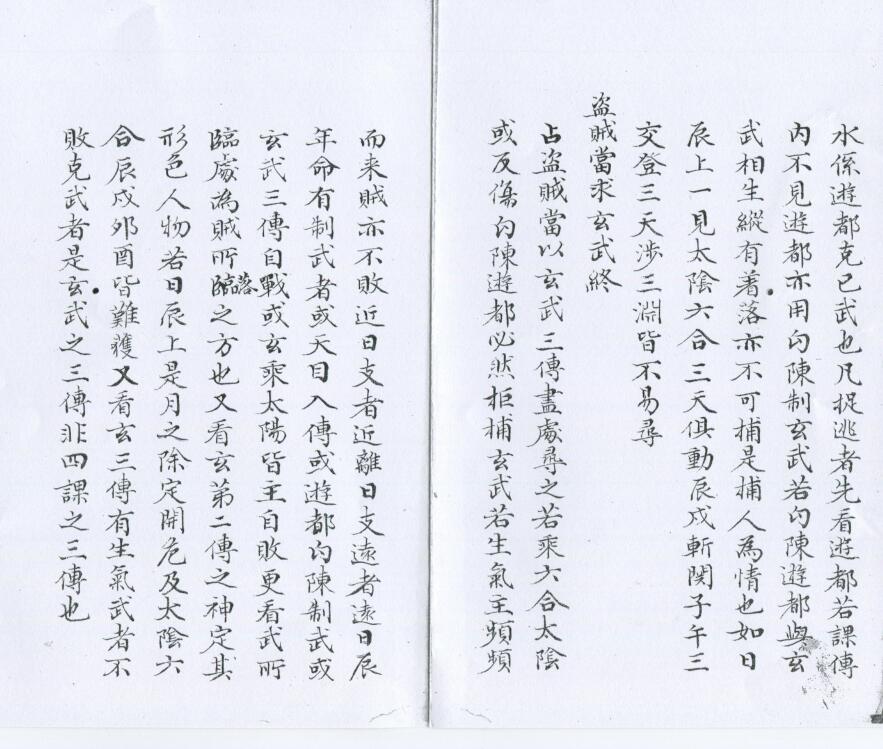 水係遊都克已武也凡捉逃者先看遊都若課傳
內不見遊都亦用勾陳制玄武若勾陳遊都與玄
武相生縱有著落亦不可捕是捕人為情也如日
辰上一見太陰六合三天俱動辰戍斬関子午三
交登三天涉三淵皆不易尋
盜賊當求玄武終
占盜賊當以玄武三傳盡處尋之若乘六合太陰
或反傷勾陳遊都必然拒捕玄武若生氣主頻頻
而来賊亦不敗近日支者近離日支遠者遠日辰
年命有制武者或天目入傳或遊都勾陳制武或
玄武三傳自戰或玄乘太陽皆主自敗更看武所
臨處為賊所臨落之方也又看玄第二傳之神定其
形色人物若日辰上是月之除定開危及太陰六
合辰戍夘酉皆難獲又看玄三傳有生氣武者不
敗克武者是玄武之三傳非四課之三傳也